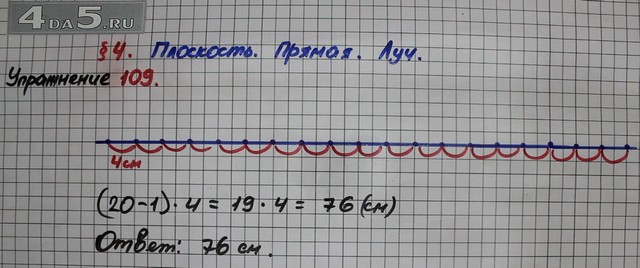 4DA5.RU
§4. Плоскость. Прямая. Луч.
Упражнение 109.
4см
(20-1)·4 = 19·4 = 76 (см)
Ответ: 76 см.